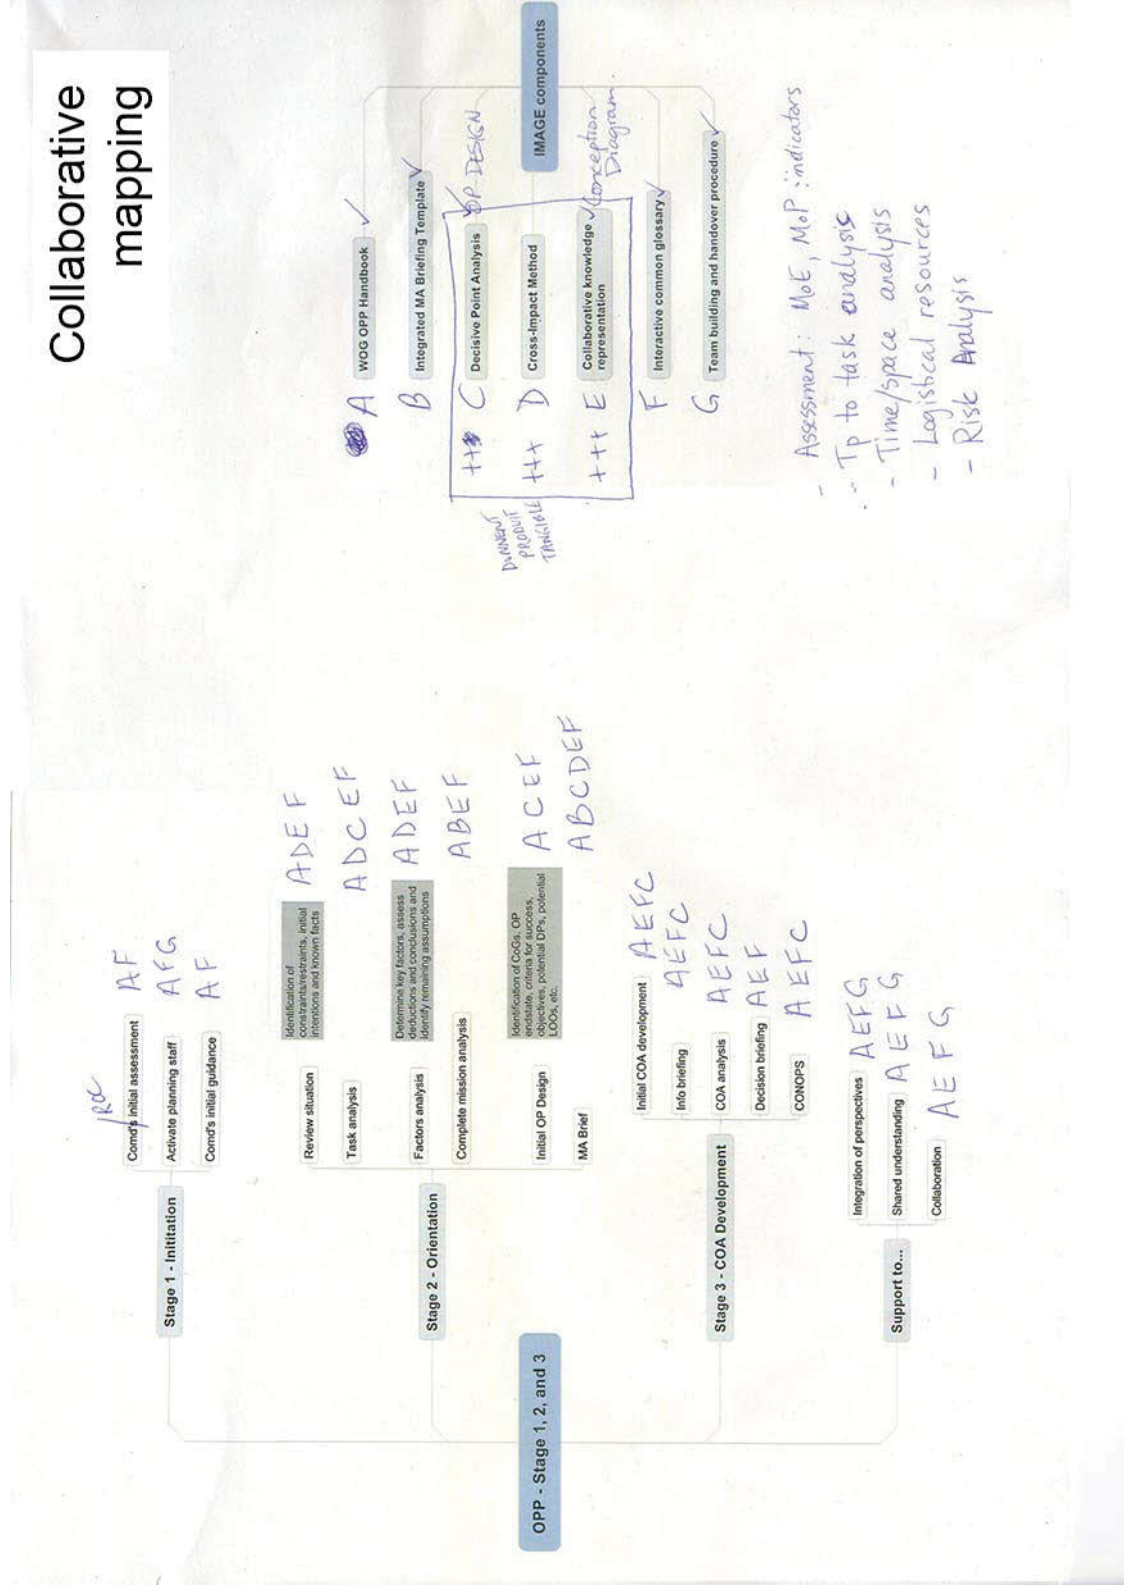 Collaborative
mapping
OPP - Stage 1, 2, and 3
Stage 1 - Inititation
ROC
Comd's initial assessment
AF
Activate planning staff
AFG
Comd's initial guidance
AF
Stage 2 - Orientation
Review situation
Identification of
constraints/restraints, initial
intentions and known facts
ADEF
Task analysis
ADCEF
Factors analysis
Determine key factors, assess
deductions and conclusions and
identify remaining assumptions
ADEF
Complete mission analysis
ABEF
Initial OP Design
Identification of CoGs, OP
endstate, criteria for success,
objectives, potential DPs, potential
LOOs, etc.
ACEF
MA Brief
ABCDEF
Stage 3 - COA Development
Initial COA development
AEFC
Info briefing
AEFC
COA analysis
AEFC
Decision briefing
AEF
CONOPS
AEFC
Support to...
Integration of perspectives
AEFG
Shared understanding
AEFG
Collaboration
AEFG
IMAGE components
A WOG OPP Handbook ✓
B Integrated MA Briefing Template ✓
++ C Decisive Point Analysis ✓ OP DESIGN
+++ D Cross-Impact Method
+++ E Collaborative knowledge ✓ Conception
representation Diagram
F Interactive common glossary ✓
G Team building and handover procedure ✓
DONNENT
PRODUIT
TANGIBLE
- Assessment: MoE, MoP : indicators
- Tp to task analysis
- Time/space analysis
- Logistical resources
- Risk Analysis